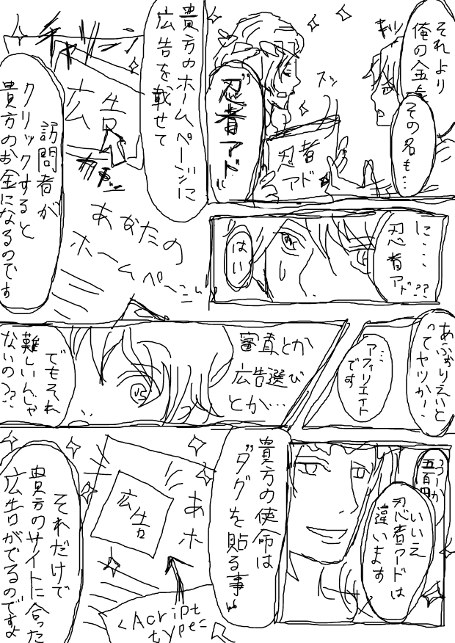 それより
俺の金を
その名も…
忍者アド
スッ
忍者
アド
貴方のホームページに
広告を載せて
広告
訪問者が
クリックすると
貴方のお金になるのです
あなたの
ホームページ
に…
忍者アド??
はい
あふぃりえいと
ってヤツか!
アフィリエイト
です
審査とか
広告選び
とか…
でもそれ
難しいんじゃ
ないの??
いいえ
忍者アドは
違います
五百円
貴方の使命は
タグを貼る事
あ
ホ
広告
<Acript
type=
それだけで
貴方のサイトに合った
広告がでるのですよ